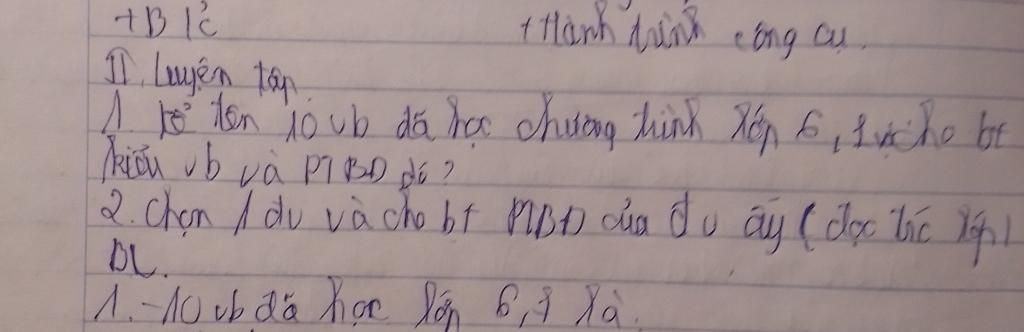 + B/c + Hành trình công cụ.
II. Luyện tập
1. Kể tên 10 vb đã học chương trình lớp 6, 7 và cho bt
kiểu vb và PTBĐ đó?
2. Chọn 1 đv và cho bt PTBĐ của đv ấy (đọc trc lớp)
BL.
1. - 10 vb đã học lớp 6, 7 là.